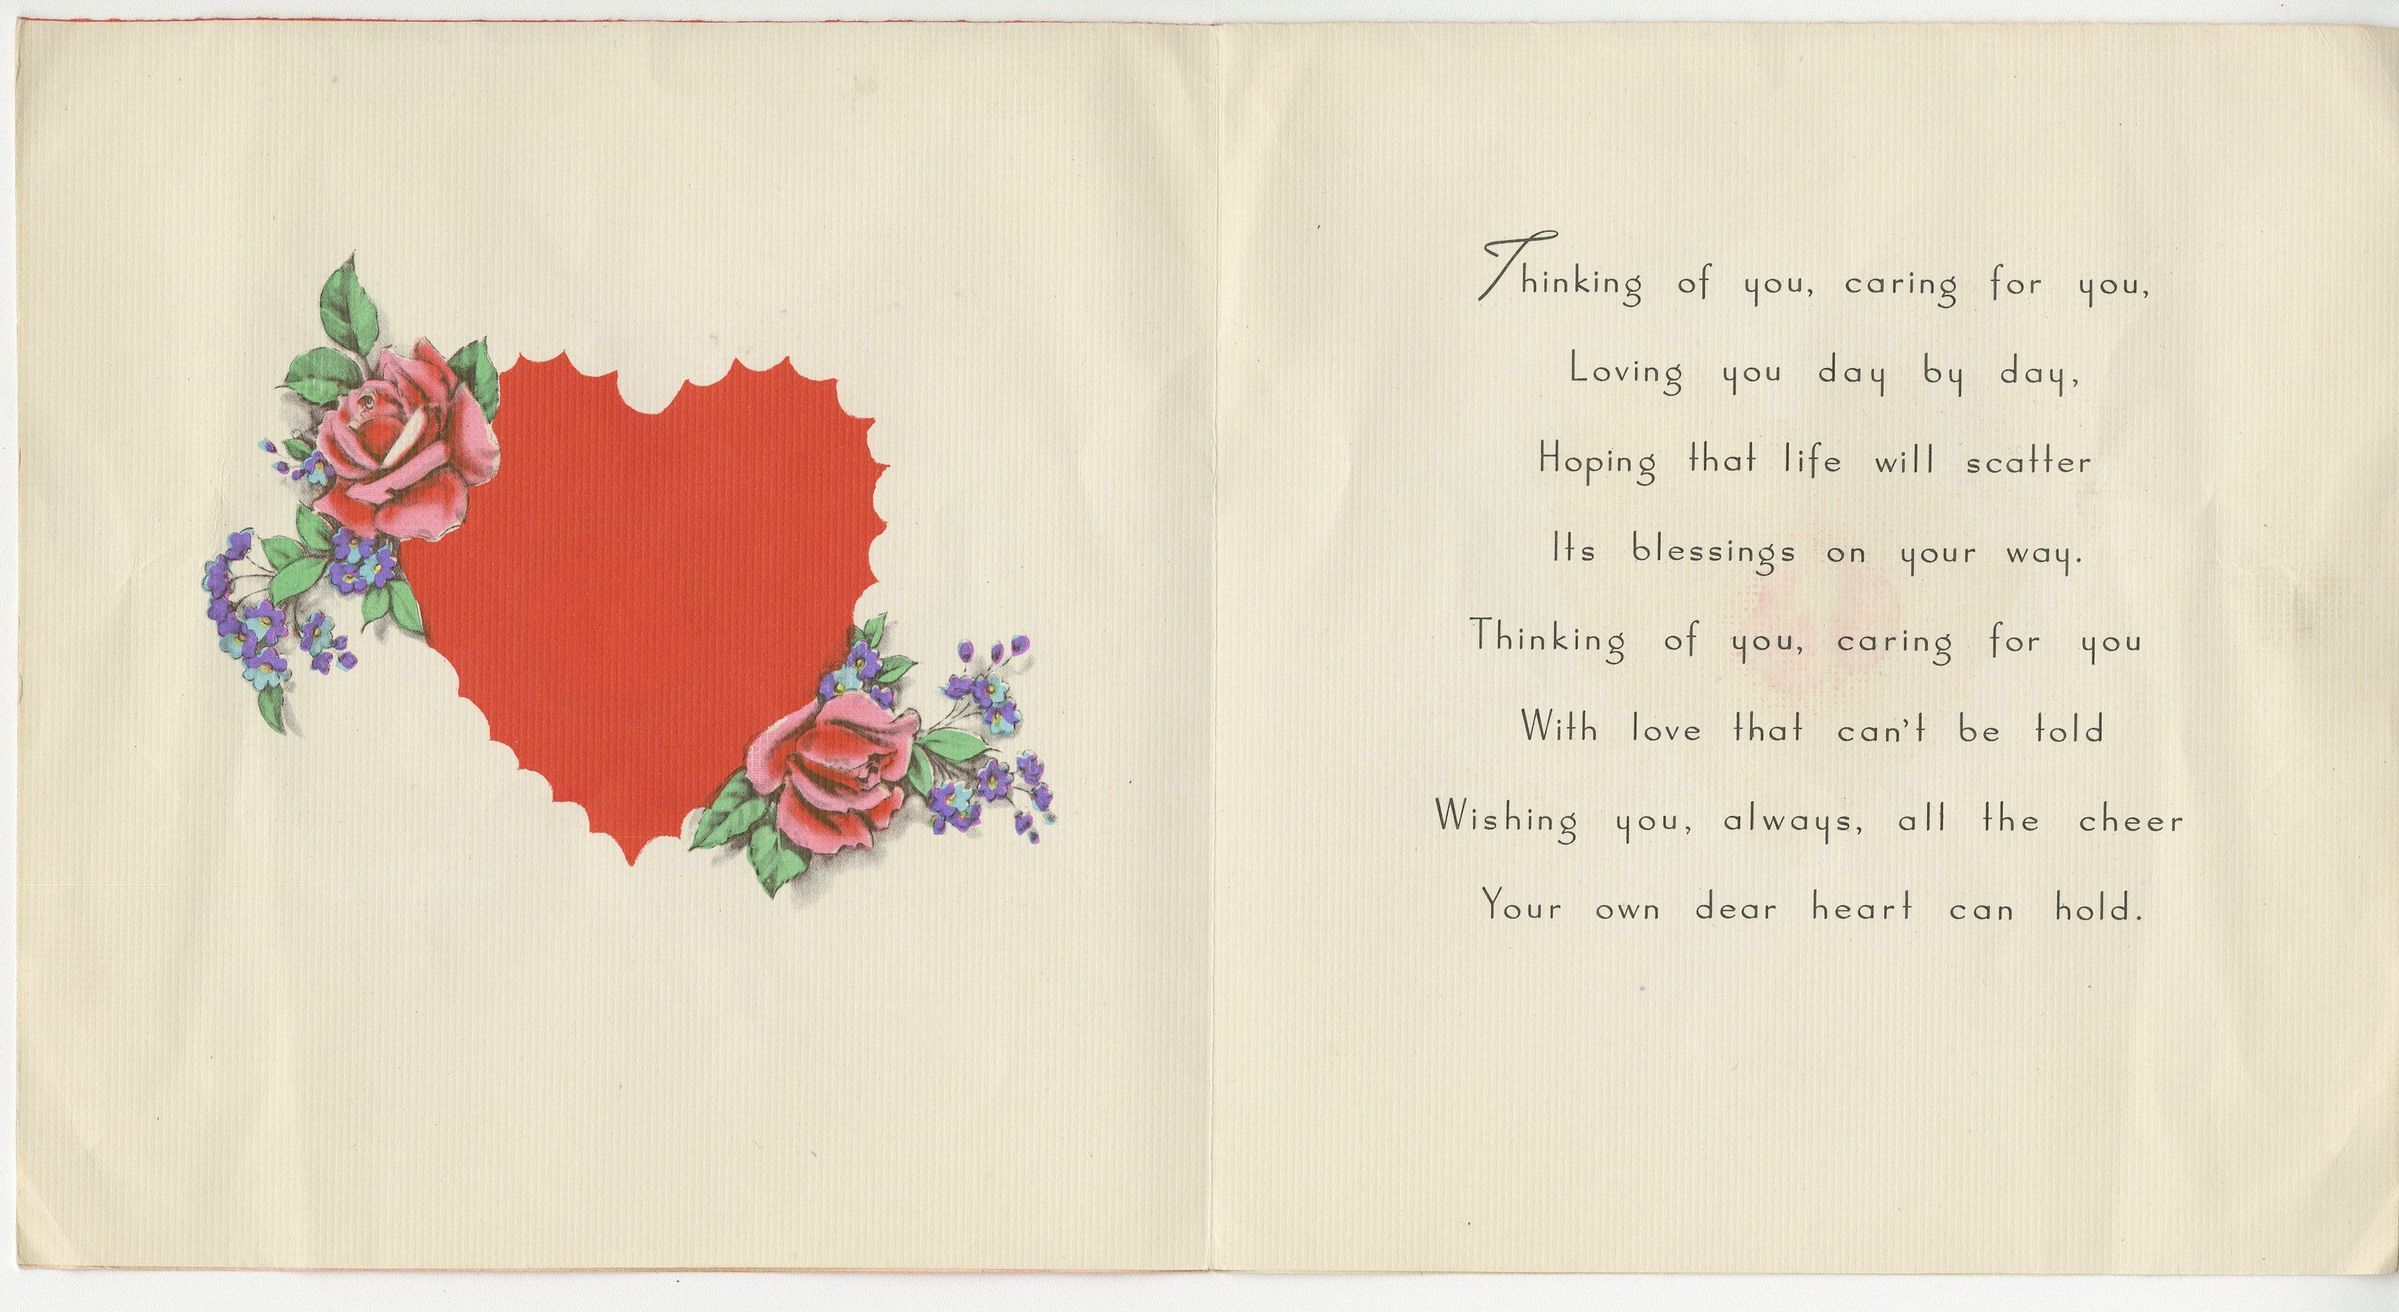 Thinking of you, caring for you,
Loving you day by day,
Hoping that life will scatter
Its blessings on your way.
Thinking of you, caring for you
With love that can't be told
Wishing you, always, all the cheer
Your own dear heart can hold.